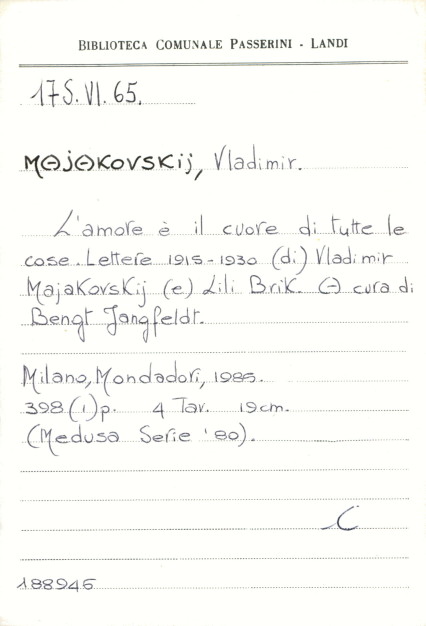 BIBLIOTECA COMUNALE PASSERINI - LANDI
17S.VI.65.
MAJAKOVSKIJ, Vladimir.
L'amore è il cuore di tutte le
cose. Lettere 1915-1930 (di) Vladimir
Majakovskij (e) Lili Brik. A cura di
Bengt Jangfeldt.
Milano, Mondadori, 1985.
398 (1) p. 4 Tav. 19 cm.
(Medusa Serie '80).
C
188945